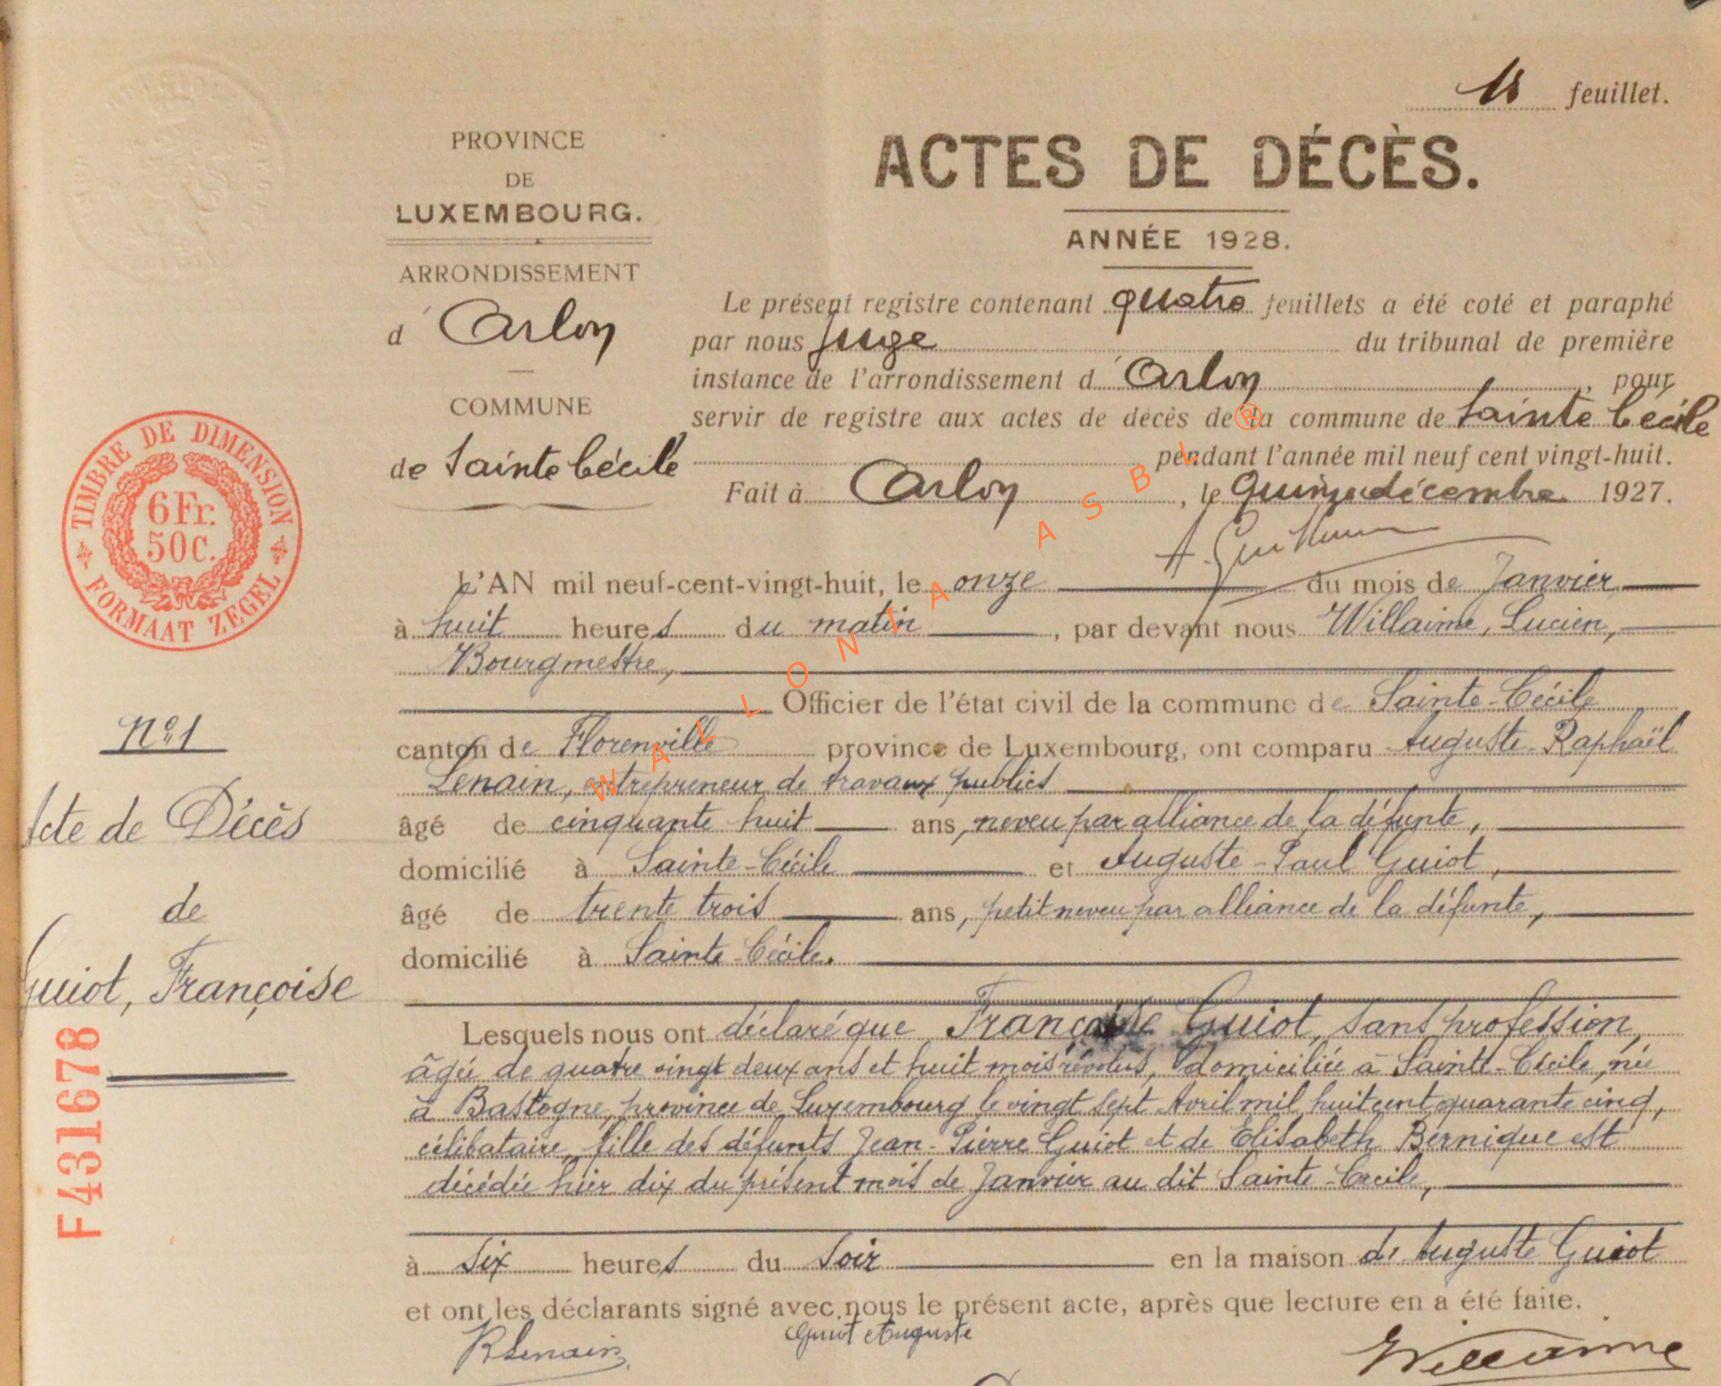 feuillet.
PROVINCE
DE
LUXEMBOURG.
ARRONDISSEMENT
d' Arlon
COMMUNE
de Sainte Cécile
ACTES DE DÉCÈS.
ANNÉE 1928.
Le présent registre contenant quatre feuillets a été coté et paraphé
par nous Juge du tribunal de première
instance de l'arrondissement d' Arlon, pour
servir de registre aux actes de décès de la commune de Sainte Cécile
pendant l'année mil neuf cent vingt-huit.
Fait à Arlon, le quinze décembre 1927.
TIMBRE DE DIMENSION
6 Fr.
50 C.
FORMAAT ZEGEL
L'AN mil neuf-cent-vingt-huit, le onze du mois de Janvier
à huit heures du matin, par devant nous Willaime, Lucien,
Bourgmestre,
Officier de l'état civil de la commune de Sainte-Cécile
canton de Florenville province de Luxembourg, ont comparu Auguste Raphaël
Lenain, entrepreneur de travaux publics
âgé de cinquante huit ans, neveu par alliance de la défunte,
domicilié à Sainte-Cécile et Auguste-Paul Guiot,
âgé de trente trois ans, petit neveu par alliance de la défunte,
domicilié à Sainte Cécile.
N° 1
Acte de Décès
de
Guiot, Françoise
F431678
Lesquels nous ont déclaré que Françoise Guiot, sans profession,
âgée de quatre vingt deux ans et huit mois révolus, domiciliée à Sainte-Cécile, née
à Bastogne, province de Luxembourg le vingt sept Avril mil huit cent quarante cinq,
célibataire, fille des défunts Jean-Pierre Guiot et de Elisabeth Bernique est
décédée hier dix du présent mois de Janvier au dit Sainte-Cécile,
à six heures du soir en la maison de Auguste Guiot
et ont les déclarants signé avec nous le présent acte, après que lecture en a été faite.
R Lenain
Guiot Auguste
Willaime
WALLONIA ASBL ®